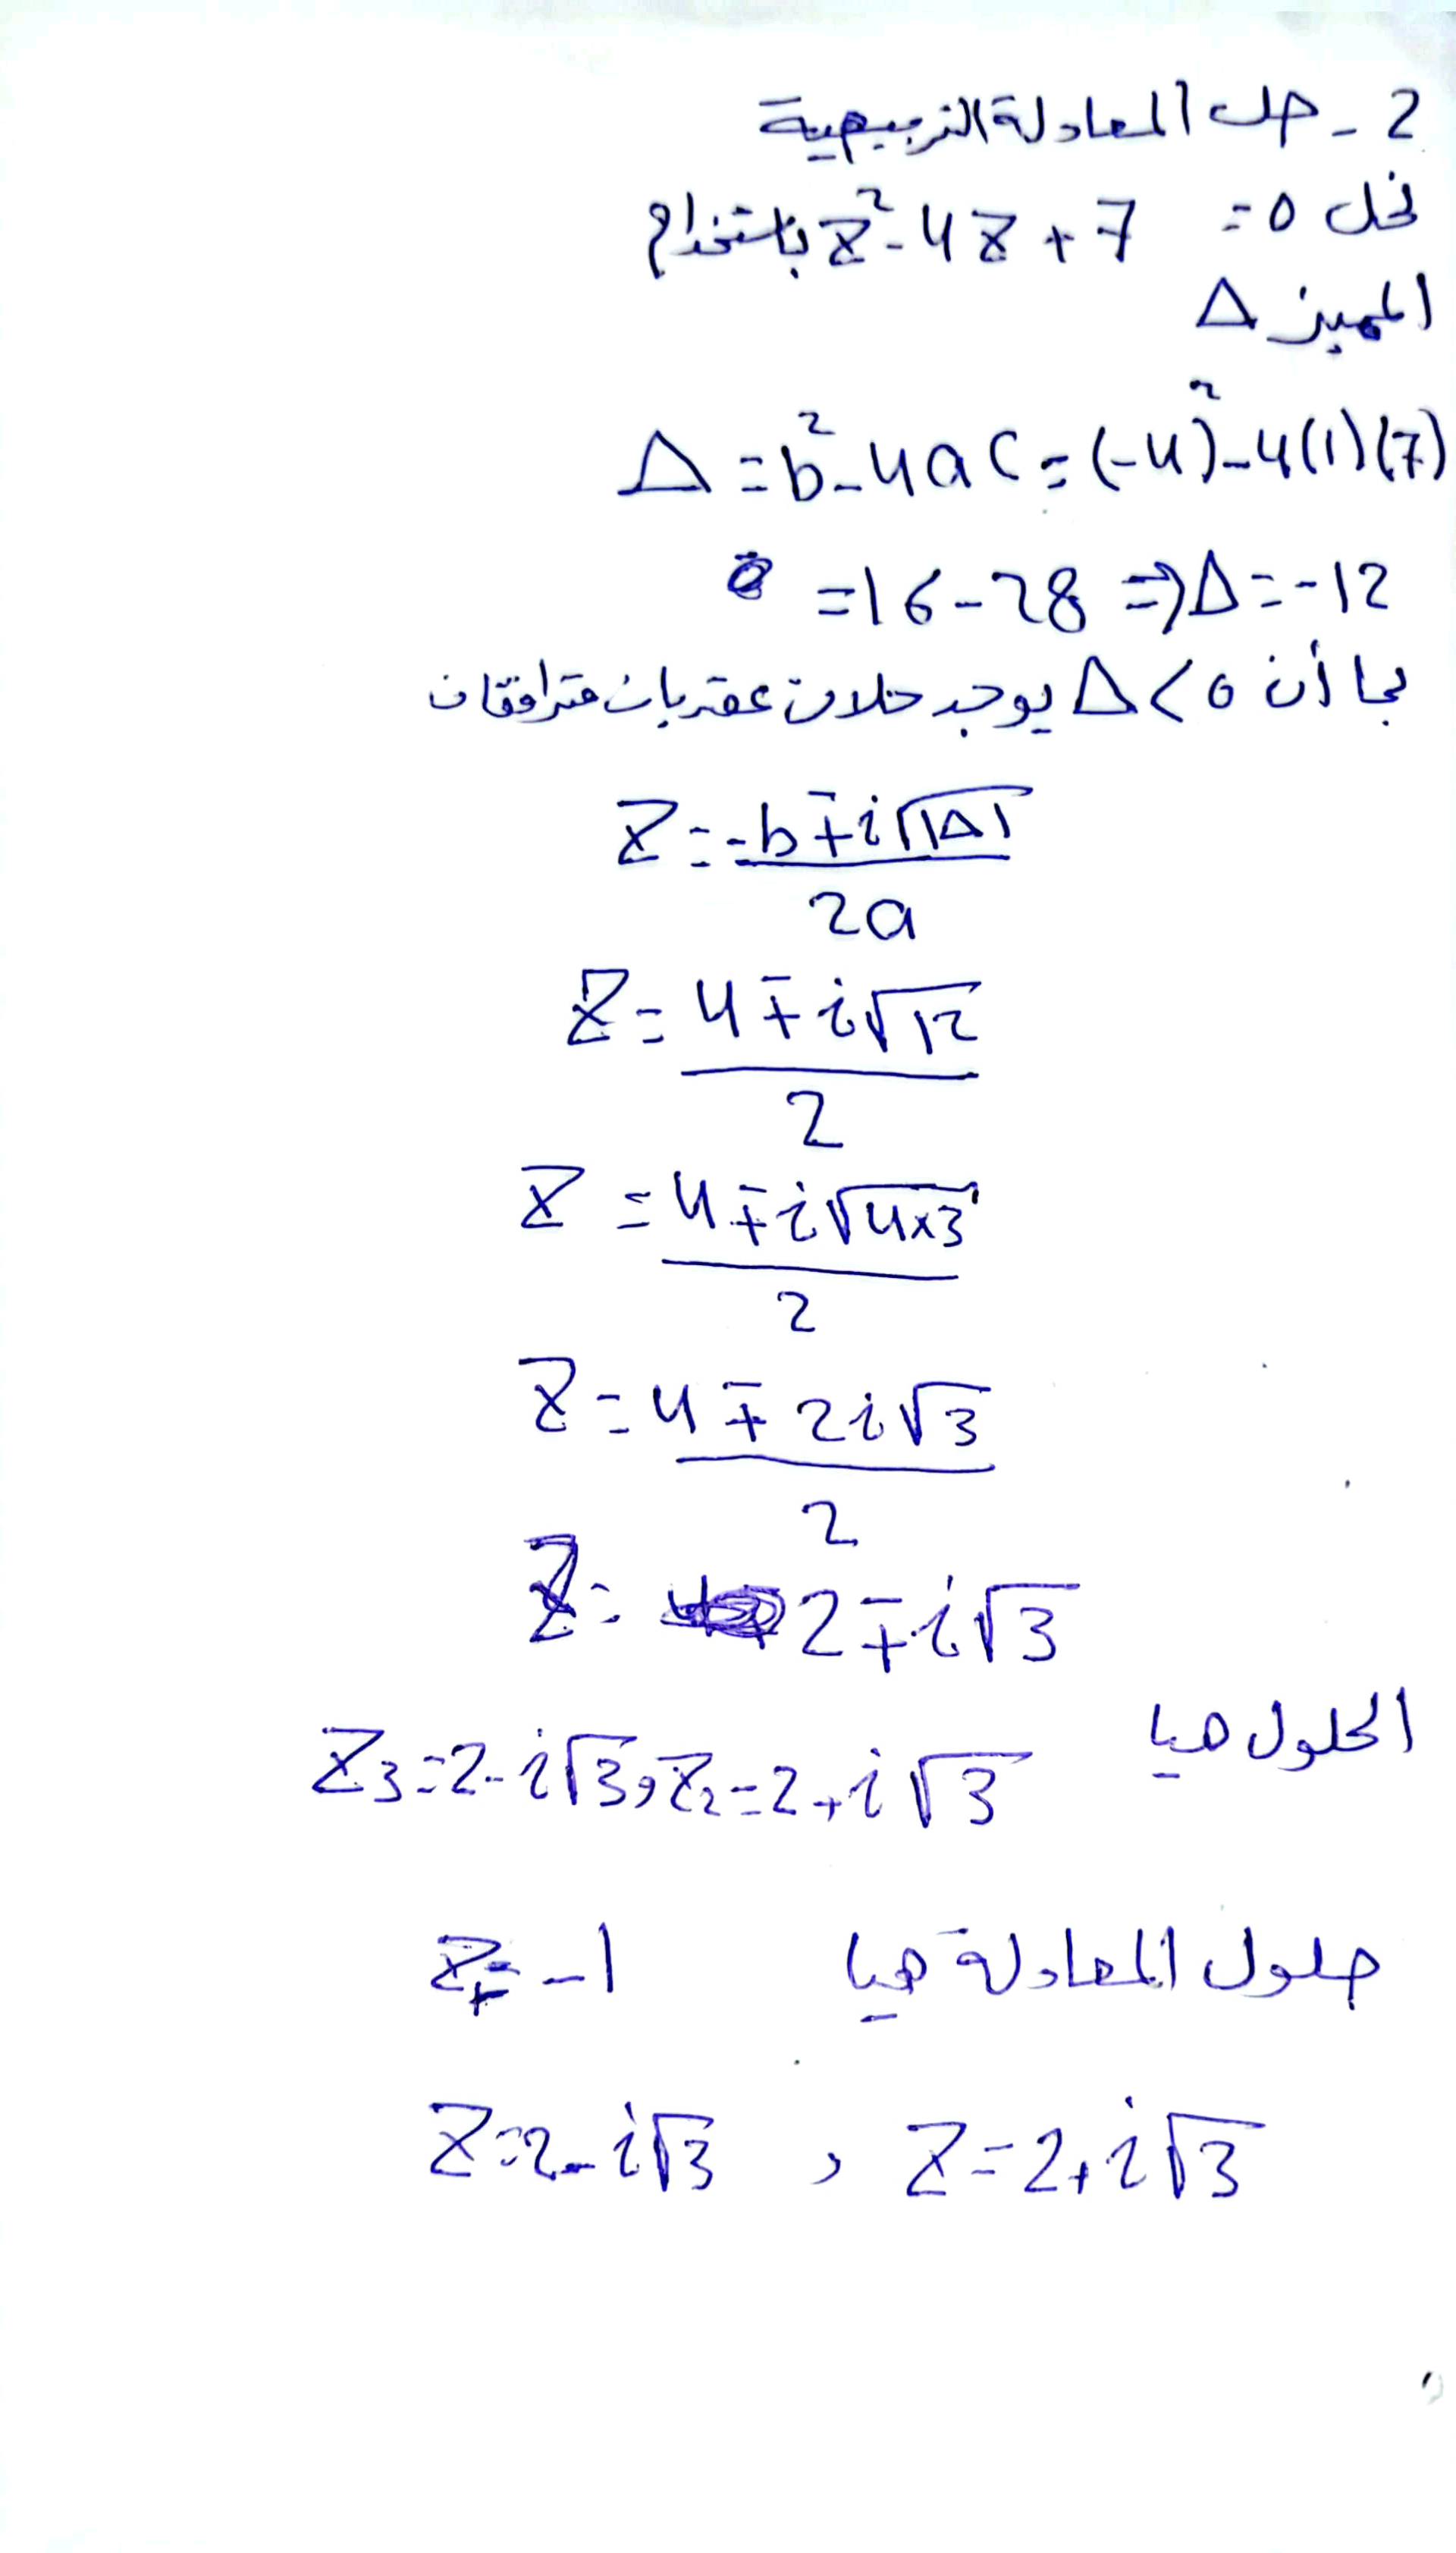 2 - حل المعادلة التربيعية
نحل z² - 4z + 7 = 0 باستخدام
المميز Δ
Δ = b² - 4ac = (-4)² - 4(1)(7)
= 16 - 28 ⇒ Δ = -12
بما أن Δ < 0 يوجد حلان عقديان مترافقان
Z = -b ∓ i√|Δ| / 2a
Z = 4 ∓ i√12 / 2
Z = 4 ∓ i√4×3 / 2
Z = 4 ∓ 2i√3 / 2
Z = 2 ∓ i√3
الحلول هيا
Z₃ = 2 - i√3 , Z₂ = 2 + i√3
حلول المعادلة هيا Z₁ = -1
Z = 2 - i√3 , Z = 2 + i√3